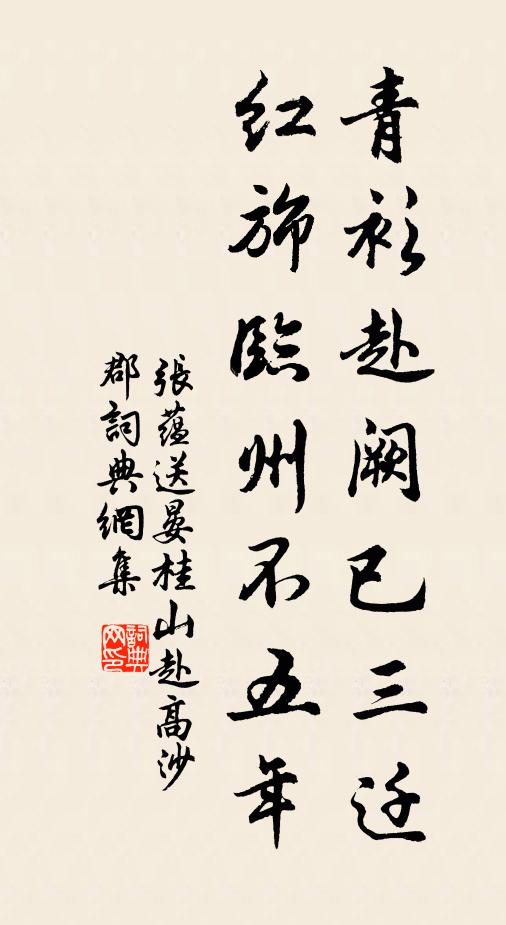 青衫赴阙已三迁
红旆臨州不五年
張蕴送晏桂山赴高沙
郡詞典網集
詞典网印